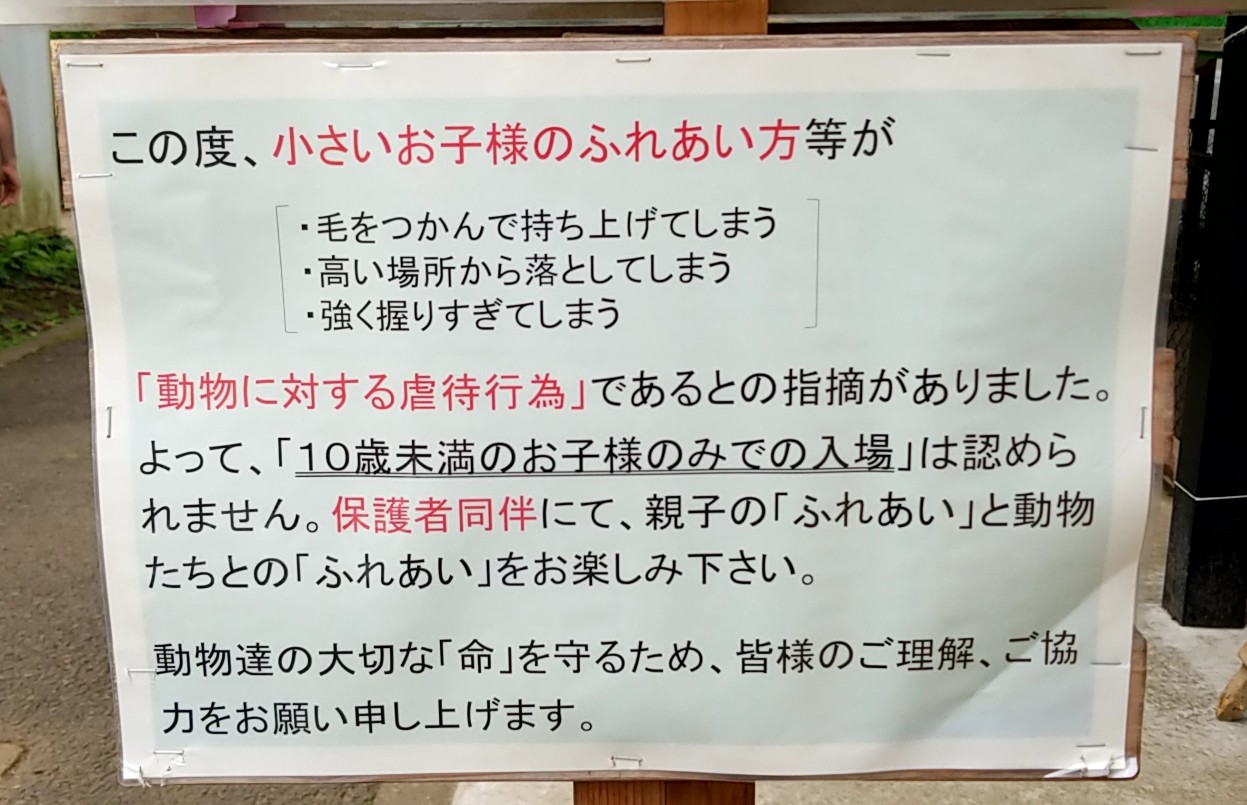 この度、小さいお子様のふれあい方等が
・毛をつかんで持ち上げてしまう
・高い場所から落としてしまう
・強く握りすぎてしまう
「動物に対する虐待行為」であるとの指摘がありました。
よって、「１０歳未満のお子様のみでの入場」は認めら
れません。保護者同伴にて、親子の「ふれあい」と動物
たちとの「ふれあい」をお楽しみ下さい。
動物達の大切な「命」を守るため、皆様のご理解、ご協
力をお願い申し上げます。